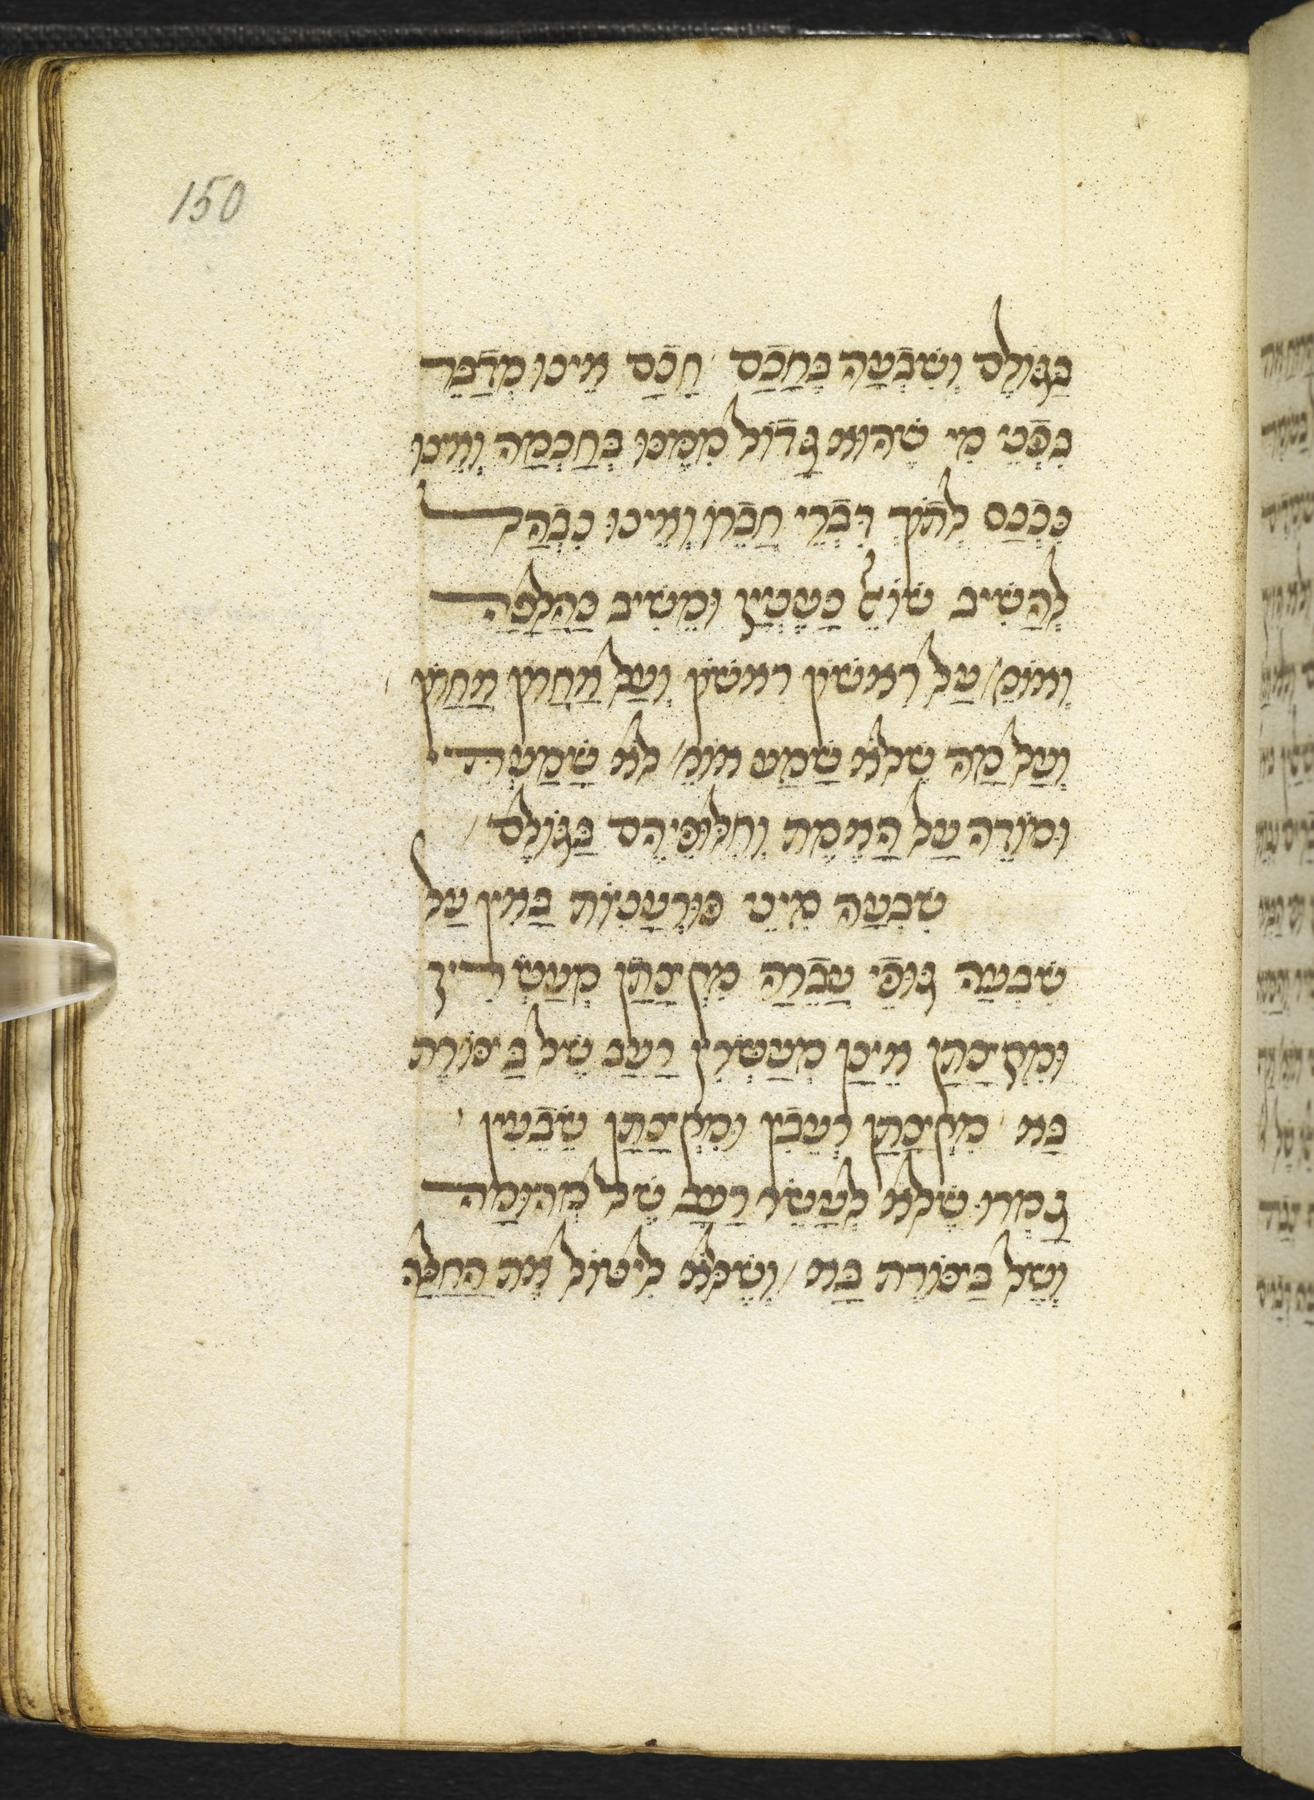 150
בַּגּוֹלֶם וְשִׁבְעָה בֶּחָכָם ׳ חָכָם אֵינוּ מְדַבֵּר
בִּפְנֵי מִי שֶׁהוּא גָּדוֹל מִמֶּנּוּ בְּחָכְמָה וְאֵינוּ
נִכְנָס לְתוֹךְ דִּבְרֵי חֲבֵרוֹ וְאֵינוּ נִבְהָל
לְהָשִׁיב שׁוֹאֵל כָּעִנְיָן וּמֵשִׁיב כַּהֲלָכָה
וְאוֹמֵ/ עַל רִאשׁוֹן רִאשׁוֹן וְעַל אַחֲרוֹן אַחֲרוֹן ׳
וְעַל מַה שֶּׁלֹּא שָׁמַע אוֹמֵ/ לֹא שָׁמַעְתִּי
וּמוֹדֶה עַל הָאֱמֶת וְחִלּוּפֵיהֶם בַּגּוֹלֶם /
שִׁבְעָה מִינֵי פּוּרְעָנִיּוֹת בָּאִין עַל
שִׁבְעָה גּוּפֵי עֲבֵרָה מִקְצָתָן מְעַשְּׂרִין
וּמִקְצָתָן אֵינָן מְעַשְּׂרִין רָעָב שֶׁל בַּצּוֹרֶת
בָּא ׳ מִקְצָתָן רְעֵבִין וּמִקְצָתָן שְׂבֵעִין ׳
גָּמְרוּ שֶׁלֹּא לְעַשֵּׂר רָעָב שֶׁל מְהוּמָה
וְשֶׁל בַּצּוֹרֶת בָּא / וְשֶׁלֹּא לִיטּוֹל אֶת הַחַלָּה